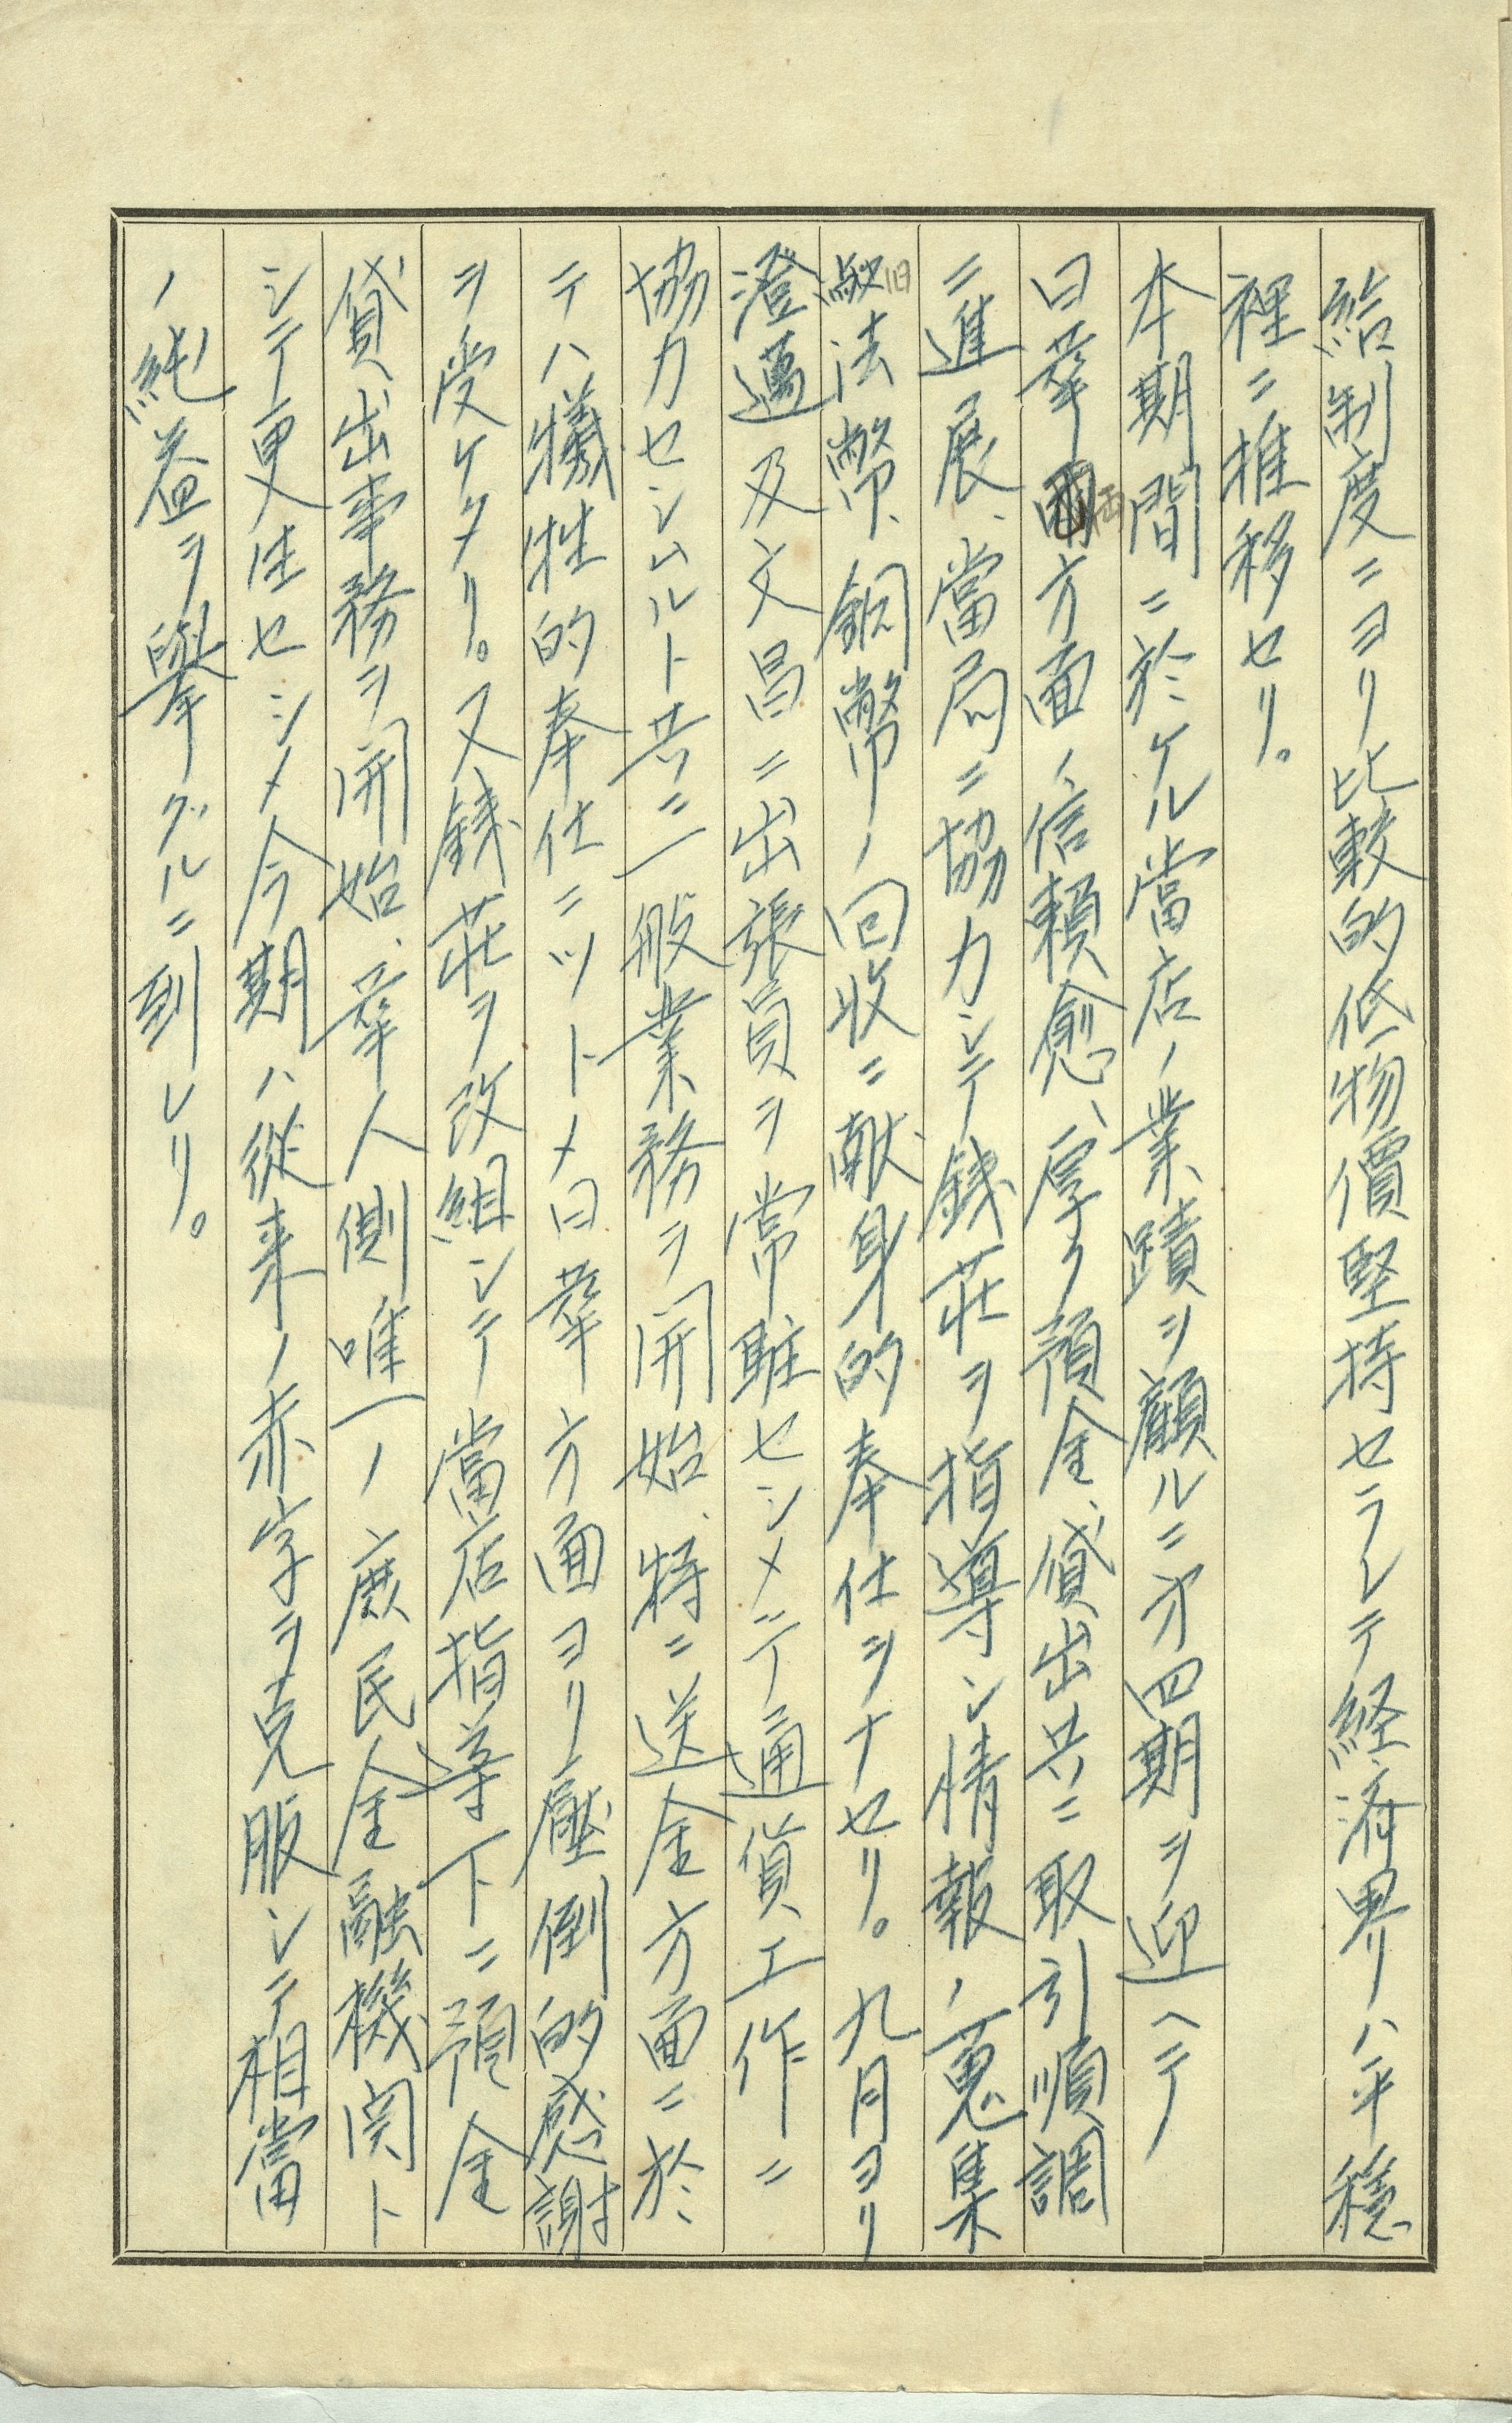 給制度ニヨリ比較的低物價堅持セラレテ経済界ハ平穏
裡ニ推移セリ。
本期間ニ於ケル當店ノ業蹟ヲ顧ルニ才四期ヲ迎ヘテ
日華両方面ノ信頼愈、厚ク預金、貸出共ニ取引順調
ニ進展、當局ニ協力シテ銭荘ヲ指導シ情報ノ蒐集
旧法幣、銅幣ノ回收ニ献身的奉仕ヲナセリ。九月ヨリ
澄邁及文昌ニ出張員ヲ常駐セシメテ通貨工作ニ
協力セシムルト共ニ一般業務ヲ開始、特ニ送金方面ニ於
テハ犠牲的奉仕ニツトメ日華方面ヨリ壓倒的感謝
ヲ受ケタリ。又銭荘ヲ改組シテ當店指導下ニ預金
貸出事務ヲ開始、華人側唯一ノ庶民金融機関ト
シテ更生セシメ今期ハ從来ノ赤字ヲ克服シテ相當
ノ純益ヲ擧グルニ到レリ。